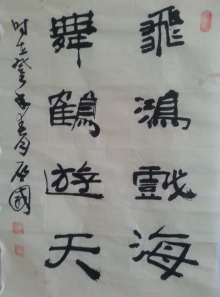 飛鴻戲海
舞鶴遊天
時在癸
國